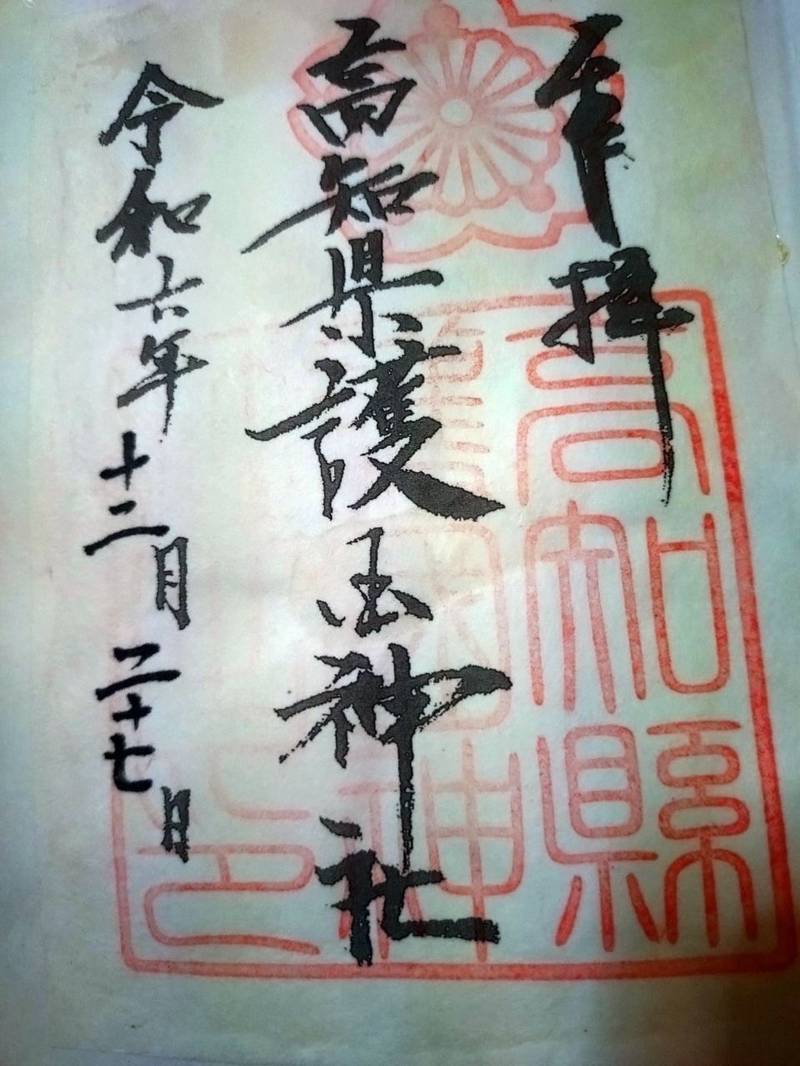 奉拝
高知県護国神社
令和六年十二月二十七日
高知縣
護國神
社之印